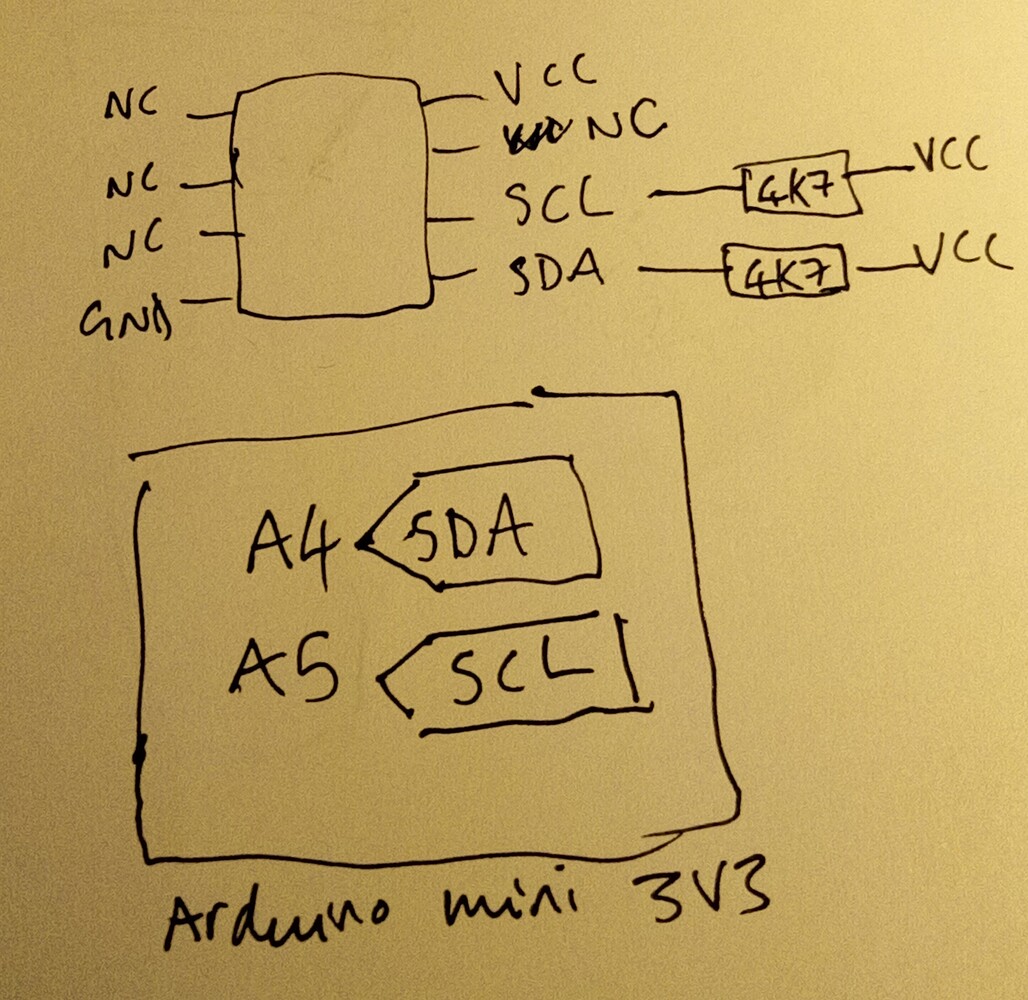 NC
VCC
NC
NC
SCL
4K7
VCC
NC
SDA
4K7
VCC
GND
A4
SDA
A5
SCL
Arduino mini 3V3